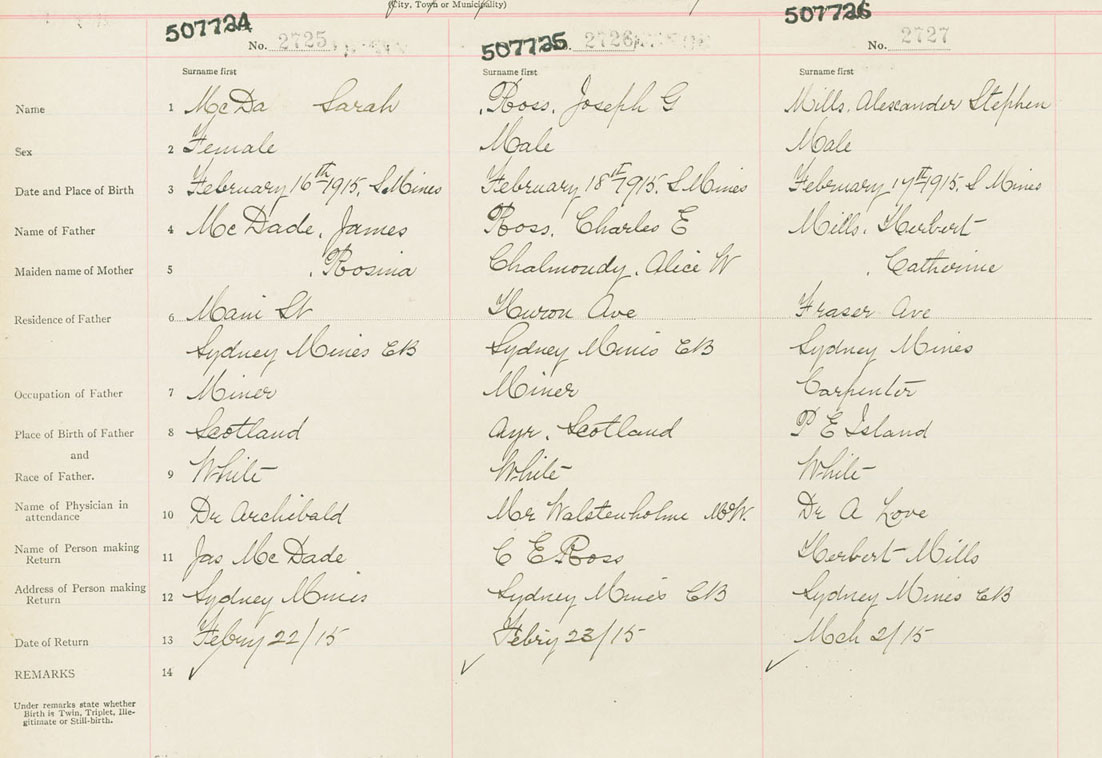 (City, Town or Municipality)
507724
No. 2725
507725
2726
507726
No. 2727
Surname first
Surname first
Surname first
Name 1 McDa Sarah Ross, Joseph G Mills, Alexander Stephen
Sex 2 Female Male Male
Date and Place of Birth 3 February 16th 1915. S Mines February 18th 1915. S Mines February 17th 1915. S Mines
Name of Father 4 McDade, James Ross, Charles E Mills, Herbert
Maiden name of Mother 5 , Rosina Chalmondy, Alice W , Catherine
Residence of Father 6 Main St Huron Ave Fraser Ave
Sydney Mines CB Sydney Mines CB Sydney Mines
Occupation of Father 7 Miner Miner Carpenter
Place of Birth of Father 8 Scotland Ayr, Scotland P E Island
and
Race of Father. 9 White White White
Name of Physician in
attendance 10 Dr Archibald Mrs Walstenholme Dr A Love
Name of Person making
Return 11 Jas McDade C E Ross Herbert Mills
Address of Person making
Return 12 Sydney Mines Sydney Mines CB Sydney Mines CB
Date of Return 13 Febry 22/15 Febry 23/15 Mch 2/15
REMARKS 14
Under remarks state whether
Birth is Twin, Triplet, Ille-
gitimate or Still-birth.